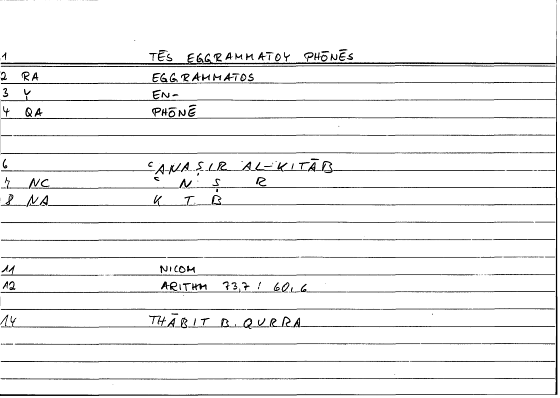 1 TĒS EGGRAMMATOY PHŌNĒS
2 RA EGGRAMMATOS
3 Y EN-
4 QA PHŌNĒ
6 ʿANĀṢIR AL-KITĀB
7 NC ʿ N Ṣ R
8 NA K T B
11 NICOM
12 ARITHM 73,7 : 60,6
14 THĀBIT B. QURRA